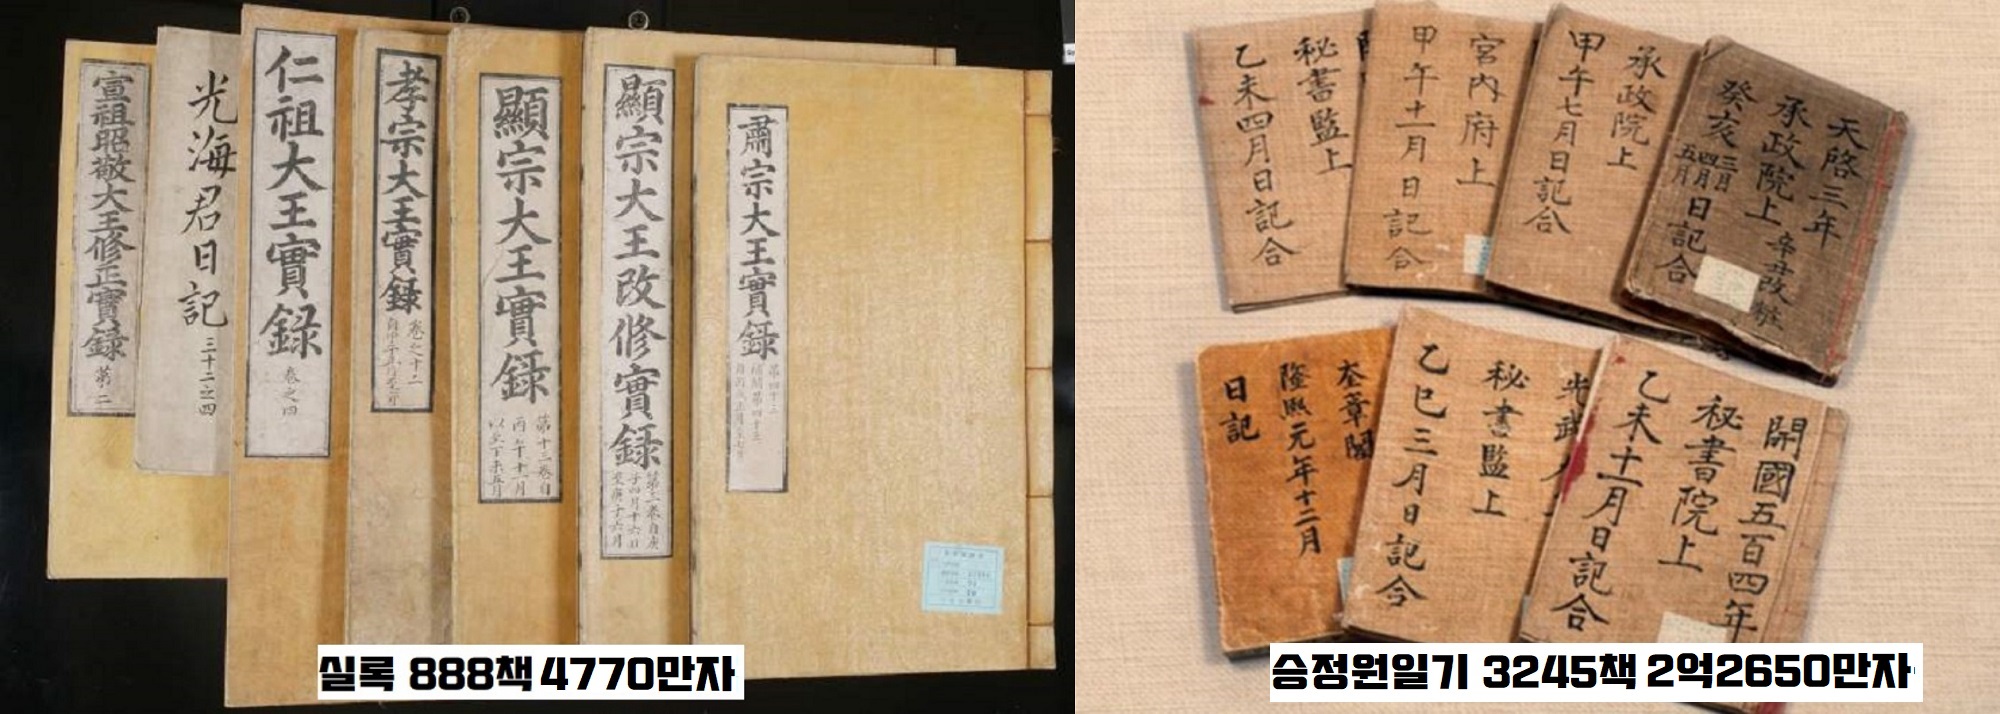 宣祖昭敬大王修正實錄 第二
光海君日記 三十二之四
仁祖大王實錄 卷之四
孝宗大王實錄 卷之十二
顯宗大王實錄
第十三卷自
丙午十一月
以至丁未五月
顯宗大王改修實錄
肅宗大王實錄
실록 888책 4770만자
秘書監上
乙未四月日記合
宮內府上
甲午十一月日記合
承政院上
甲午七月日記合
天啓三年
承政院上 辛丑改粧
癸亥 三月 四月 五月 日記合
奎章閣
隆熙元年十二月
日記
光武
秘書監上
乙巳三月日記合
開國五百四年
秘書院上
乙未十一月日記合
승정원일기 3245책 2억2650만자